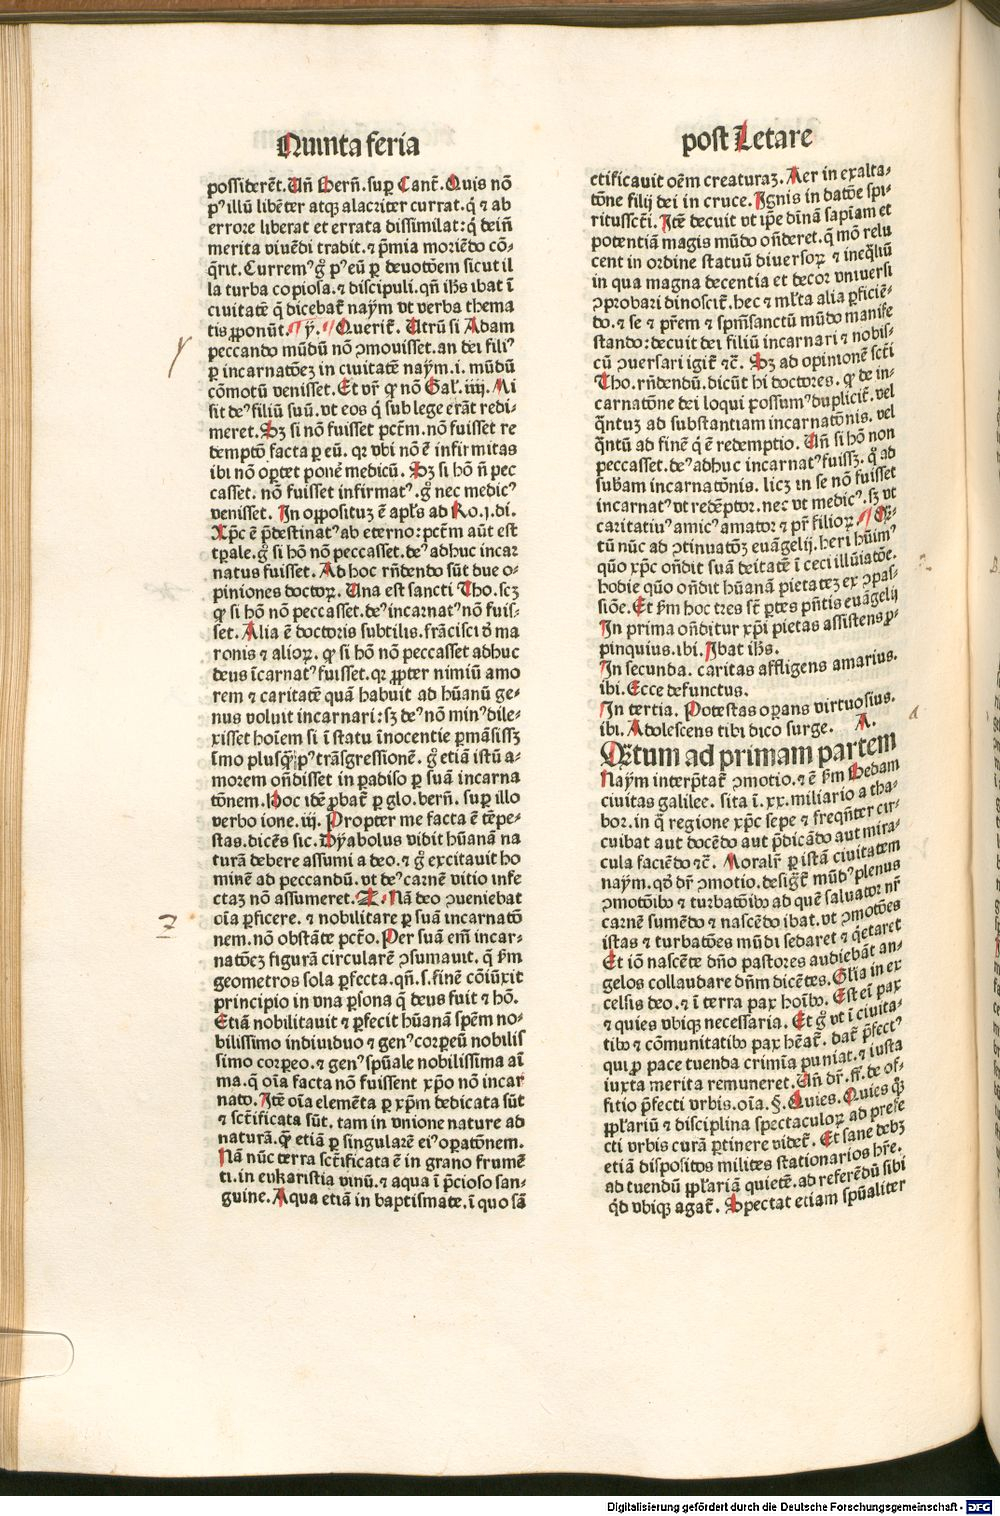 Quinta feria
possiderēt. Uñ Bern̄. sup̱ Cant̄. Quis nō
pꝰ illū libēter atqꝫ alacriter currat. q̄ ⁊ ab
errore liberat et errata dissimilat: q̄ dein̄
merita viuēdi tradit. ⁊ p̄mia moriēdo cō-
q̄rit. Curremꝰ g̊ pꝰ eū ꝑ deuotōem sicut il
la turba copiosa. ⁊ discipuli. qn̄ ih̄s ibat ī
ciuitatē q̄ dicebat̄ naym vt verba thema
tis ꝓponūt. y. Querit̄. Utrū si Adam
peccando mūdū nō ꝯmouisset. an dei filiꝰ
ꝑ incarnatōeꝫ in ciuitatē naym. i. mūdū
cōmotū venisset. Et vr̄ ꝙ nō Gal̄. iiij. Mi
sit deꝰ filiū suū. vt eos q̄ sub lege erāt redi-
meret. Sꝫ si nō fuisset pctm̄. nō fuisset re
demptō facta ꝑ eū. qꝛ vbi nō ē infirmitas
ibi nō oꝑtet ponē medicū. Sꝫ si hō n̄ pec
casset. nō fuisset infirmatꝰ. g̊ nec medicꝰ
venisset. In oppositū ē apl̄s ad Ro. j. di.
Xp̄c ē p̄destinatꝰ ab eterno: pctm̄ aūt est
tꝑale. g̊ si hō nō peccasset. deꝰ adhuc incar
natus fuisset. Ad hoc rn̄dendo sūt due o-
piniones doctoꝝ. Una est sancti Tho. scꝫ
ꝙ si hō nō peccasset. deꝰ incarnatꝰ nō fuis-
set. Alia ē doctoris subtilis. frācisci d̄ ma
ronis ⁊ alioꝝ. ꝙ si hō nō peccasset adhuc
deus īcarnatꝰ fuisset. qꝛ ꝓpter nimiū amo
rem ⁊ caritatē quā habuit ad hūanū ge-
nus voluit incarnari: sꝫ deꝰ nō minꝰ dile-
xisset hoīem si ī statu īnocentie ꝑmāsissꝫ
īmo plusq̄ꝫ pꝰ trāsgressionē. g̊ etiā istū a-
morem on̄disset in paradiso ꝑ suā incarna
tōnem. Hoc idē ꝓbat̄ ꝑ glo. bern̄. sup̱ illo
verbo ione. iij. Propter me facta ē tēpe-
stas. dicēs sic. Dyabolus vidit hūanā na
turā debere assumi a deo. ⁊ g̊ excitauit ho
minē ad peccandū. vt deꝰ carnē vitio infe
ctaꝫ nō assumeret. Z. Nā deo ꝯueniebat
oīa ꝑficere. ⁊ nobilitare ꝑ suā incarnatō
nem. nō obstāte pctō. Per suā em̄ incar-
natōeꝫ figurā circularē ꝯsumauit. q̄ ẜm
geometros sola ꝑfecta. qn̄. s. finē cōiūxit
principio in vna ꝑsona q̄ deus fuit ⁊ hō.
Etiā nobilitauit ⁊ ꝑfecit hūanā spēm no-
bilissimo indiuiduo ⁊ genꝰ corpeū nobilis
simo corpeo. ⁊ genꝰ spūale nobilissima aī
ma. q̄ oīa facta nō fuissent xp̄o nō incar
nato. Itē oīa elemēta ꝑ xp̄m dedicata sūt
⁊ sctīficata sūt. tam in vnione nature ad
naturā. q̄ꝫ etiā ꝑ singularē eiꝰ oꝑatōnem.
Nā nūc terra sctīficata ē in grano frumē
ti. in eukaristia vinū. ⁊ aqua ī p̄cioso san-
guine. Aqua etiā in baptismate. ī quo sā
post Letare
ctificauit oēm creaturaꝫ. Aer in exalta-
tōne filij dei in cruce. Ignis in datōe spi-
ritusscti. Itē decuit vt ip̄e dīnā sapīam et
potentiā magis mūdo on̄deret. q̄ mō relu
cent in ordine statuū diuersoꝝ ⁊ ineq̄liū
in qua magna decentia et decor vniuersi
ꝯprobari dinoscit̄. hec ⁊ ml̄ta alia ꝑficiē-
do. ⁊ se ⁊ pr̄em ⁊ spm̄sanctū mūdo manife
stando: decuit dei filiū incarnari ⁊ nobis-
cū ꝯuersari igit̄ ⁊c̄. Sꝫ ad opinionē scti
Tho. rn̄dendū. dicūt hi doctores. ꝙ de in-
carnatōne dei loqui possumꝰ duplicit̄. vel
q̄ntuꝫ ad substantiam incarnatōnis. vel
q̄ntū ad finē q̄ ē redemptio. Uñ si hō non
peccasset. deꝰ adhuc incarnatꝰ fuissꝫ. q̊ ad
sub̄am incarnatōnis. licꝫ in se nō fuisset
incarnatꝰ vt redēptor. nec vt medicꝰ. sꝫ vt
caritatiuꝰ amicꝰ amator ⁊ pr̄ filioꝝ. Qꝫ-
tū nūc ad ꝯtinuatōꝫ euāgelij. heri hūimꝰ
quō xp̄c on̄dit suā deitatē ī ceci illūiatōe.
hodie quō on̄dit hūanā pietateꝫ ex ꝯpas-
siōe. Et ẜm hoc tres st̄ ꝑtes pn̄tis euāgelij
In prima on̄ditur xp̄i pietas assistens ꝓ-
pinquius. ibi. Ibat ih̄s.
In secunda. caritas affligens amarius.
ibi. Ecce defunctus.
In tertia. Potestas oꝑans virtuosius.
ibi. Adolescens tibi dico surge. A.
Qꝫtum ad primam partem
Naym interp̄tat̄ ꝯmotio. ⁊ ē ẜm Bedam
ciuitas galilee. sita ī. xx. miliario a tha-
bor. in q̄ regione xp̄c sepe ⁊ freqn̄ter cir-
cuibat aut docēdo aut p̄dicādo aut mira-
cula faciēdo ⁊c̄. Moralr̄ ꝑ istā ciuitatem
naym. qd̄ dr̄ ꝯmotio. desigt̄ mūdꝰ plenus
ꝯmotōibꝰ ⁊ turbatōibꝰ ad quē saluator nr̄
carnē sumēdo ⁊ nascēdo ibat. vt ꝯmotōes
istas ⁊ turbatōes mūdi sedaret ⁊ q̄etaret
Et iō nascēte dn̄o pastores audiebāt an-
gelos collaudare dn̄m dicētes. Glīa in ex
celsis deo. ⁊ ī terra pax hoībꝰ. Est eī pax
⁊ quies vbiqꝫ necessaria. Et g̊ vt ī ciuita-
tibꝰ ⁊ cōmunitatibꝰ pax hēat̄. dat̄ p̄fectꝰ
qui ꝓ pace tuenda crimīa puniat. ⁊ iusta
iuxta merita remuneret. Uñ dr̄. ff. de of-
fitio p̄fecti vrbis. oīa. §. Quies. Quies q̄ꝫ
ppl̄ariū ⁊ disciplina spectaculoꝝ ad prefe
cti vrbis curā ꝑtinere videt̄. Et sane debꝫ
etiā dispositos milites stationarios hr̄e.
ad tuendū ppl̄ariā quietē. ad referēdū sibi
qd̄ vbiqꝫ agat̄. Spectat etiam spūaliter
y
z
a
Digitalisierung gefördert durch die Deutsche Forschungsgemeinschaft - DFG